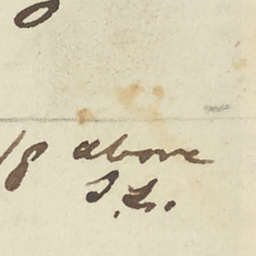 18 above
S.L.